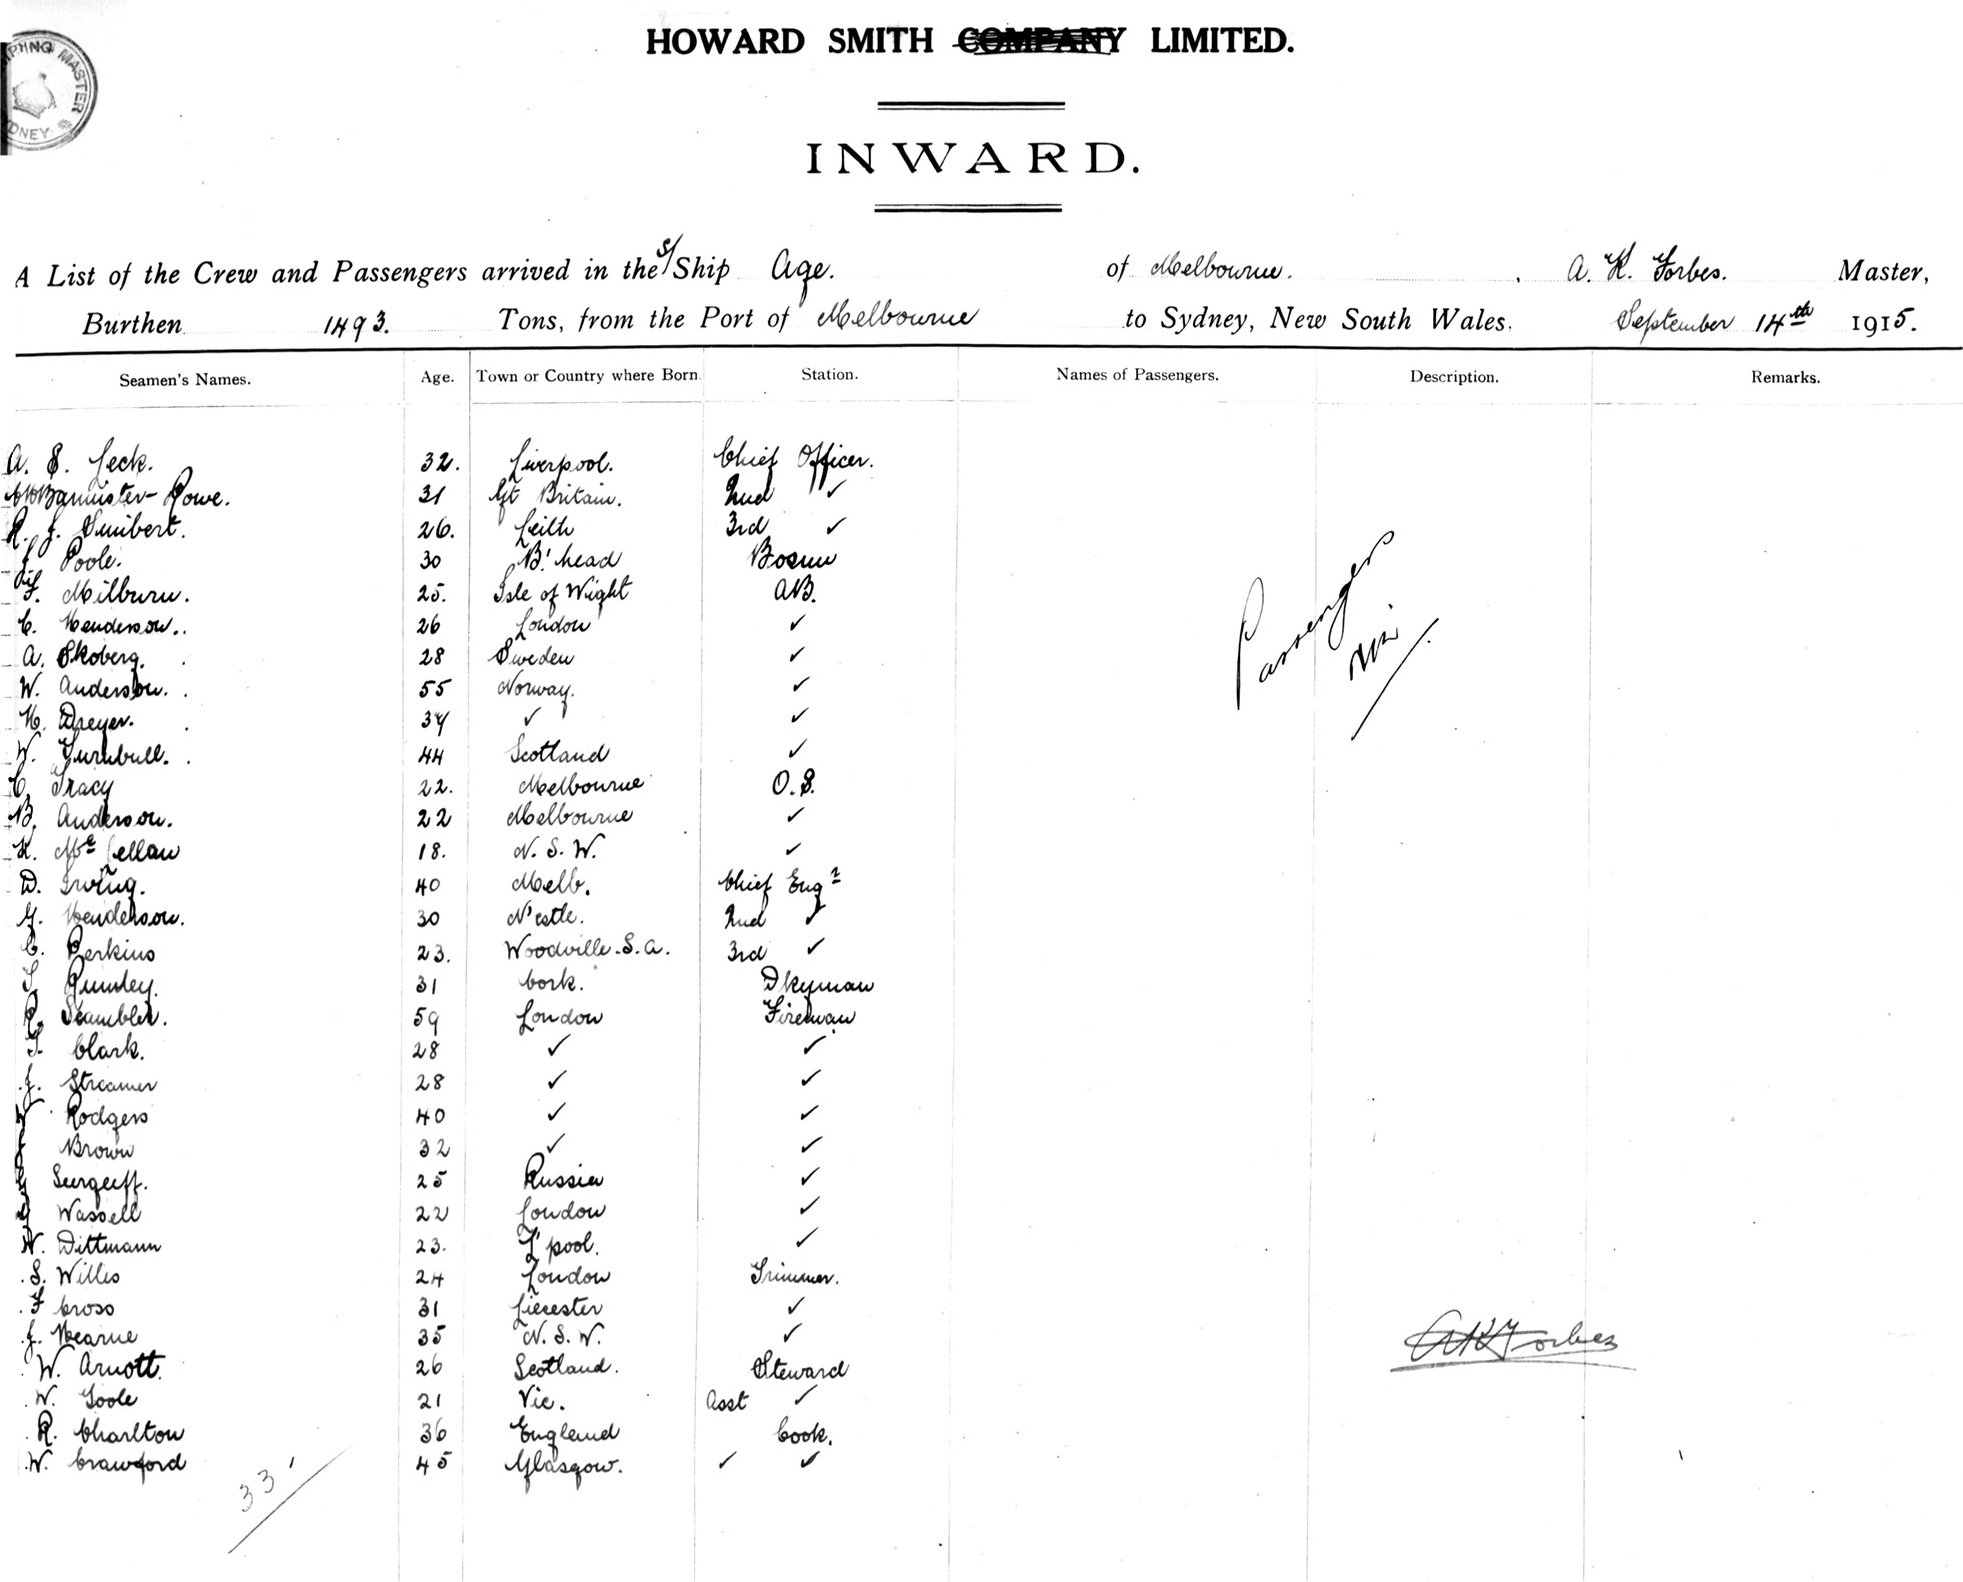 SHIPPING MASTER SYDNEY
HOWARD SMITH COMPANY LIMITED.
INWARD.
A List of the Crew and Passengers arrived in the S/Ship Age. of Melbourne. A. K. Forbes. Master,
Burthen 1493. Tons, from the Port of Melbourne to Sydney, New South Wales. September 14th 1915.
Seamen's Names. Age. Town or Country where Born. Station. Names of Passengers. Description. Remarks.
A. S. Leck. 32. Liverpool. Chief Officer.
Bannister-Rowe. 31 Gt Britain. 2nd ✓
R. J. Smibert. 26. Leith 3rd ✓
J. Poole. 30 B'head Bosun
F. Milburn. 25. Isle of Wight AB.
C. Henderson. 26 London ✓
A. Skoberg. 28 Sweden ✓
W. Anderson. 55 Norway. ✓
H. Dreyer. 34 ✓ ✓
W. Turnbull. 44 Scotland ✓
C. Tracy 22. Melbourne O.S.
B. Anderson. 22 Melbourne ✓
K. Mc Lellan 18. N. S. W. ✓
D. Irving. 40 Melb. Chief Engr
G. Henderson. 30 N'cstle. 2nd ✓
C. Perkins 23. Woodville. S. A. 3rd ✓
31 Cork. Dkyman
R. Scambler. 59 London Fireman
T. Clark. 28 ✓ ✓
J. Streamer 28 ✓ ✓
Rodgers 40 ✓ ✓
Brown 32 ✓ ✓
Seergeff. 25 Russia ✓
Wassell 22 London ✓
W. Dittmann 23. L'pool. ✓
S. Willis 24 London Trimmer.
F Cross 31 Liecester ✓
J. Hearne 35 N. S. W. ✓
W. Arnott. 26 Scotland. Steward
W. Toole 21 Vic. Asst ✓
R. Charlton 36 England Cook.
W. Crawford 45 Glasgow. ✓ ✓
33
Passengers
Nil
AKForbes